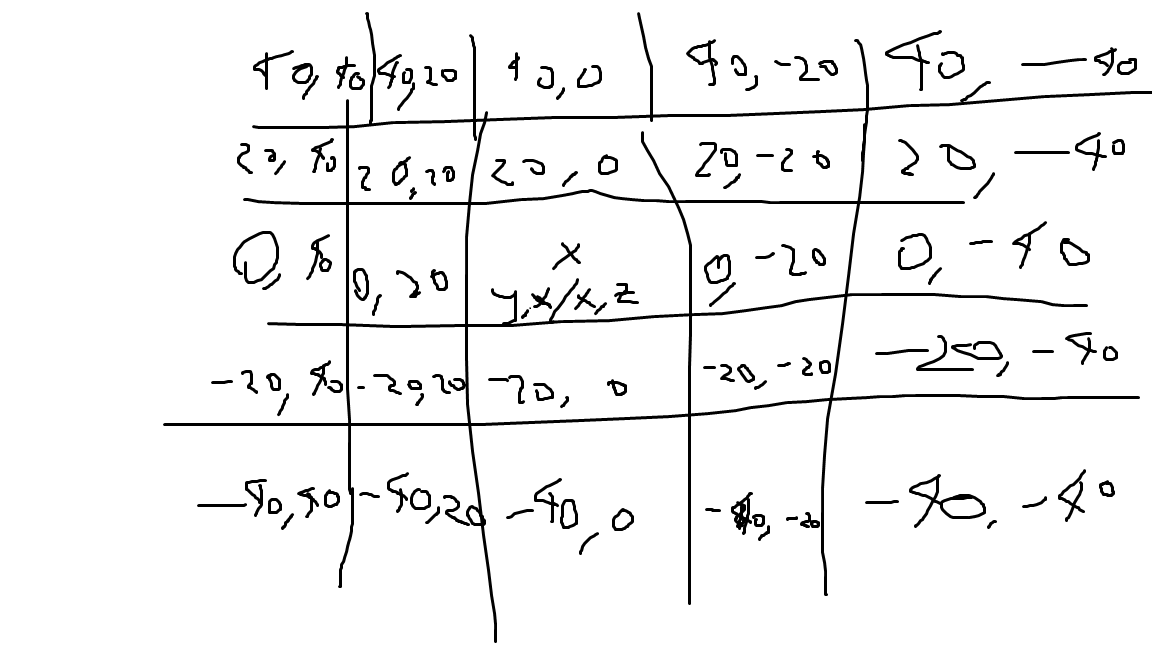 40, 40 40,20 40,0 40, -20 40, -40
20, 40 20,20 20, 0 20, -20 20, -40
0, 40 0, 20 x 0, -20 0, -40
y,x/x,z
-20, 40 -20,20 -20, 0 -20, -20 -20, -40
-40, 40 -40,20 -40, 0 -40, -20 -40, -40